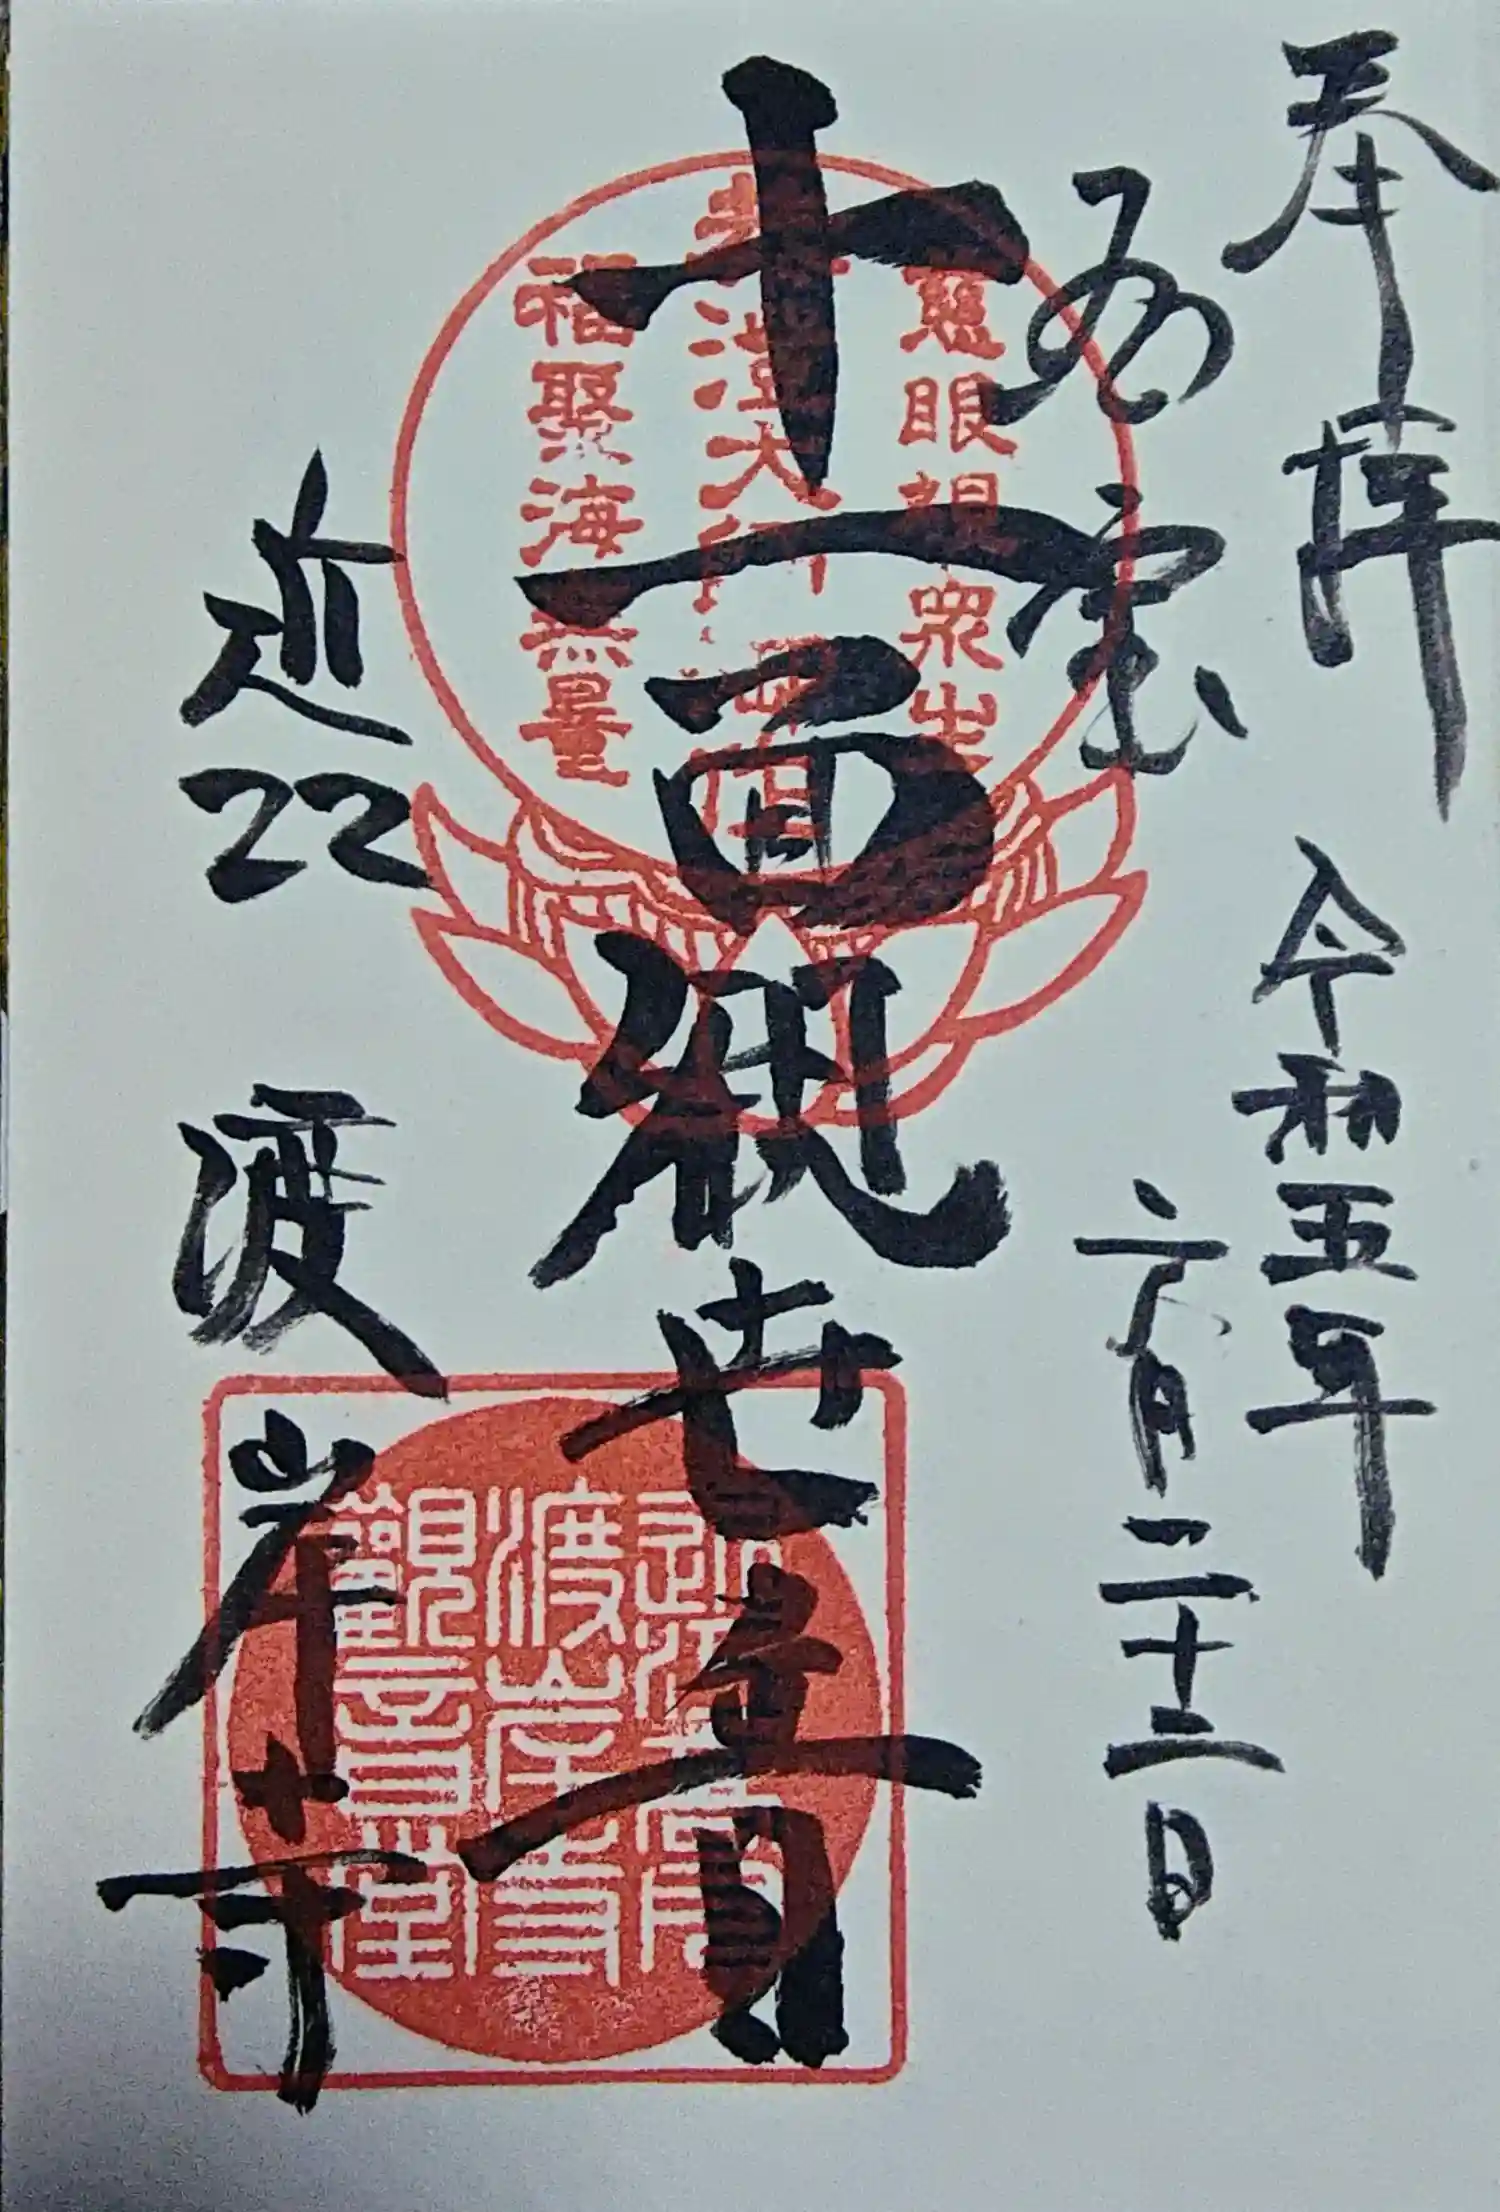 奉拝 令和五年
六月二十二日
国宝
十一面観世音
近江 渡岸寺
慈眼視衆生
福聚海無量
渡岸寺
觀音堂